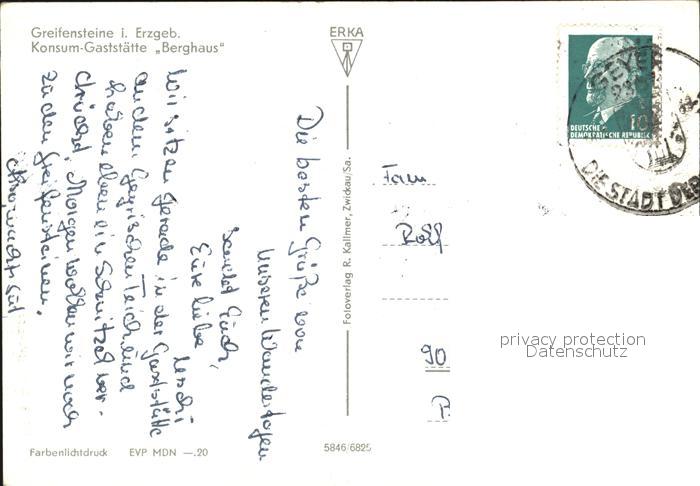 Greifensteine i. Erzgeb.
Konsum-Gaststätte „Berghaus"
ERKA
DEUTSCHE
DEMOKRATISCHE REPUBLIK
10
GEYER
DIE STADT DER
Die besten Grüße von
unseren Wandertagen
sendet Euch,
Eure liebe
Uschi
Wir sitzen gerade in der Gaststätte
an dem Geyrischen Teich und
haben eben ein Schnitzel ver-
drückt. Morgen wollen wir noch
zu den Greifensteinen.
Fam
Rolf
90
P.
Fotoverlag R. Kallmer, Zwickau/Sa.
privacy protection
Datenschutz
Farbenlichtdruck EVP MDN —.20
5846/6825